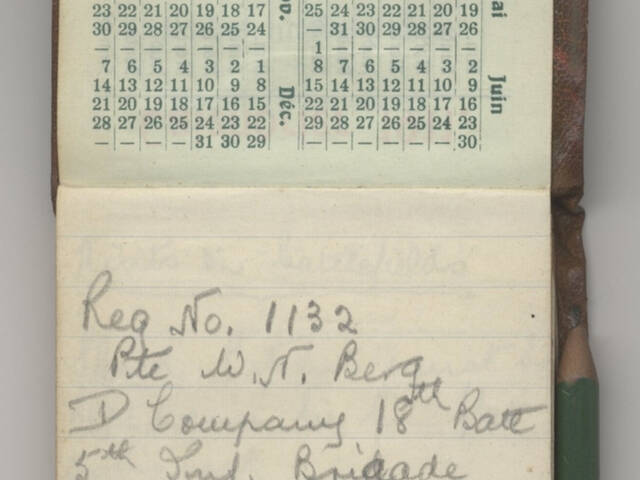 23 22 21 20 19 18 17
30 29 28 27 26 25 24
— — — — — — —
7 6 5 4 3 2 1
14 13 12 11 10 9 8
21 20 19 18 17 16 15
28 27 26 25 24 23 22
— — — — 31 30 29
ov.
Déc.
25 24 23 22 21 20 19
— 31 30 29 28 27 26
1 — — — — — —
8 7 6 5 4 3 2
15 14 13 12 11 10 9
22 21 20 19 18 17 16
29 28 27 26 25 24 23
— — — — — — 30
ai
Juin
Reg No. 1132
Pte W. N. Berg
D Company 18th Batt
5th Inf. Brigade